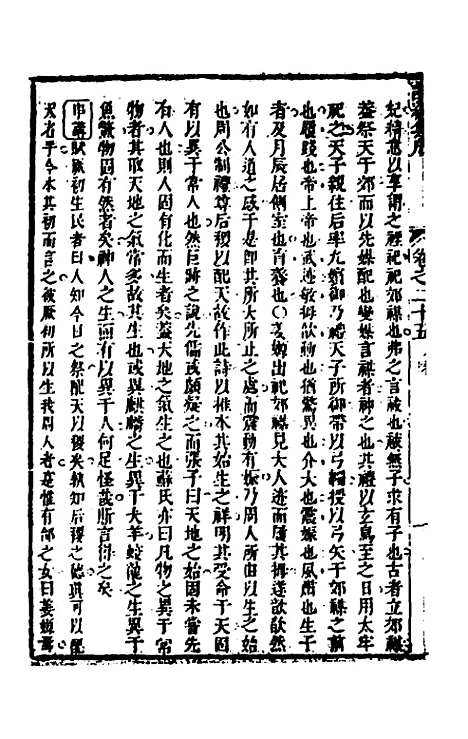 妃精意以享謂之禋祀祀郊禖也弗之言祓也祓無子求有子也古者立郊禖
蓋祭天于郊而以先媒配也變媒言禖者神之也其禮以玄鳥至之日用大牢
祀之天子親往后率九嬪御乃禮天子所御帶以弓韣授以弓矢于郊禖之前
也履踐也帝上帝也武迹敏拇歆動也猶驚異也介大也震娠也夙肅也生子
者及月辰居側室也育養也○姜嫄出祀郊禖見大人迹而履其拇遂歆歆然
如有人道之感于是即其所大所止之處而震動有娠乃周人所由以生之始
也周公制禮尊后稷以配天故作此詩以推本其始生之祥明其受命于天固
有以異于常人也然巨跡之說先儒或頗疑之而張子曰天地之始固未嘗先
有人也則人固有化而生者矣蓋天地之氣生之也蘇氏亦曰凡物之異于常
物者其取天地之氣常多故其生也或異麒麟之生異于犬羊蛟龍之生異于
魚鱉物固有然者矣神人之生而有以異于人何足怪哉斯言得之矣
申講賦厥初生民者曰人知今日之祭配天以稷矣孰知后稷之德眞可以配
天者乎今本其初而言之彼厥初所以生我周人者是惟有邰之女曰姜嫄焉
卷之二十五